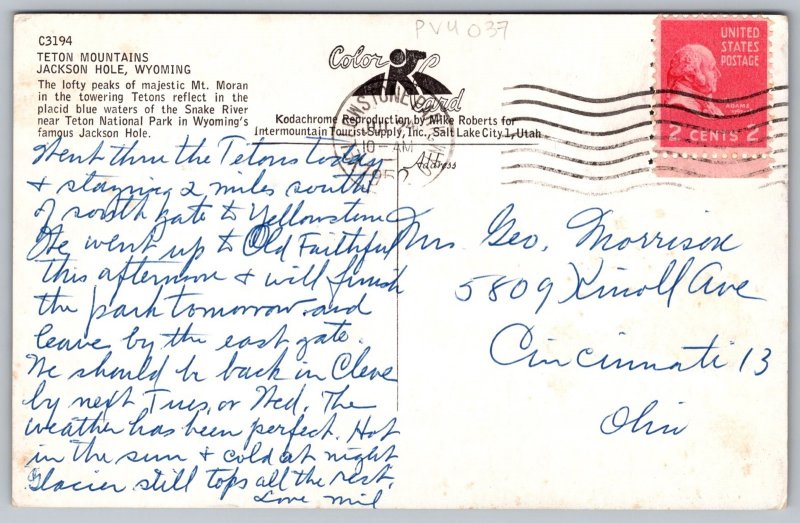 PVU 037
C3194
TETON MOUNTAINS
JACKSON HOLE, WYOMING
The lofty peaks of majestic Mt. Moran
in the towering Tetons reflect in the
placid blue waters of the Snake River
near Teton National Park in Wyoming's
famous Jackson Hole.
Color
Card
Kodachrome Reproduction by Mike Roberts for
Intermountain Tourist Supply, Inc., Salt Lake City 1, Utah
Address
UNITED
STATES
POSTAGE
ADAMS
2 CENTS 2
10 - AM
Went thru the Tetons today
& staying 2 miles south
of south gate to Yellowstone
We went up to Old Faithful
this afternoon & will finish
the park tomorrow and
leave by the east gate.
We should be back in Cleve
by next Tues. or Wed. The
weather has been perfect. Hot
in the sun & cold at night
Glacier still tops all the rest.
Love Mil
Mrs. Geo. Morrison
5809 Kinoll Ave
Cincinnati 13
Ohio